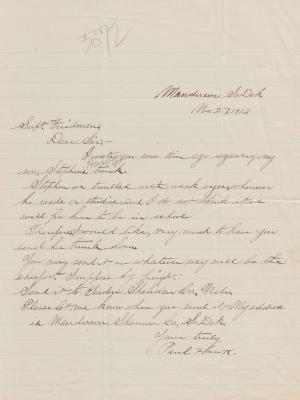 3892
Manderson S. Dak
Nov. 27, 1903
Supt. Friedman,
Dear Sir:-
I wrote you some time ago regarding my
son, Stephen Hawk's trunk.
Stephen is troubled with weak eyes whenever
he reads or studies and I do not think it is
well for him to be in school.
Therefore I would like, very much to have you
send his trunk home.
You may send it in whatever way will be the
cheapest I suppose by freight.
Send it to Gordon Sheridan Co, Nebr.
Please let me know when you send it. My address
is Manderson, Shannon Co, S. Dak.
Yours truly
Paul Hawk.